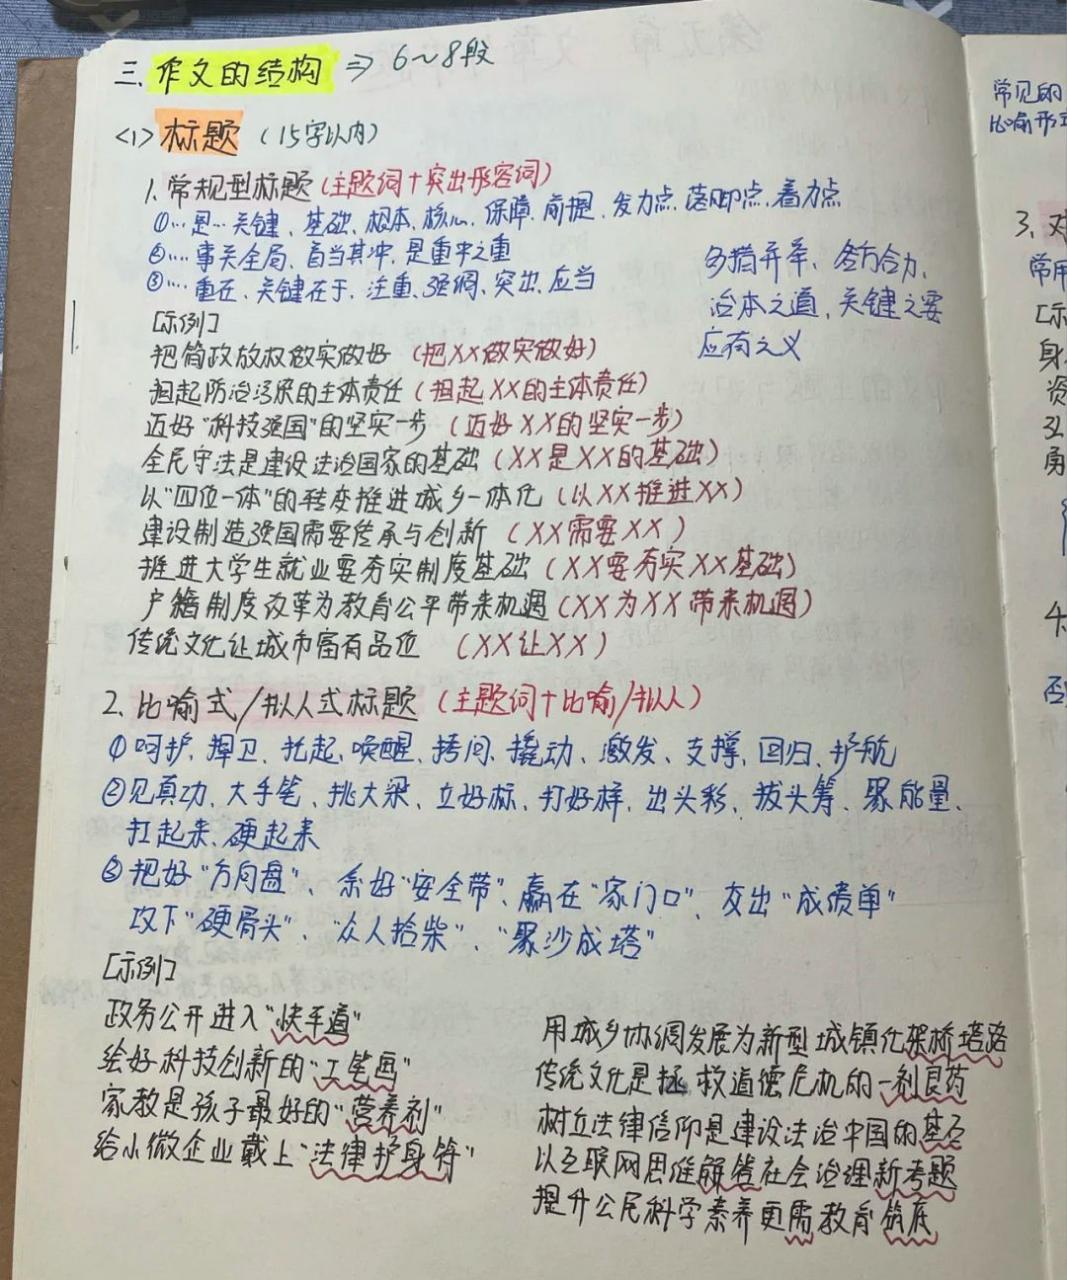 三、作文的结构 => 6~8段
<1> 标题 (15字以内)
1. 常规型标题 (主题词+突出形容词)
①…是…关键、基础、根本、核心、保障、前提、发力点、落脚点、着力点
②…. 事关全局、首当其冲、是重中之重
③…. 重在、关键在于、注重、强调、突出、应当
多措并举、各方合力、
治本之道、关键之要
应有之义
[示例]
把简政放权做实做好 (把XX做实做好)
担起防治污染的主体责任 (担起XX的主体责任)
迈好"科技强国"的坚实一步 (迈好XX的坚实一步)
全民守法是建设法治国家的基础 (XX是XX的基础)
以"四位一体"的转变推进城乡一体化 (以XX推进XX)
建设制造强国需要传承与创新 (XX需要XX)
推进大学生就业要夯实制度基础 (XX要夯实XX基础)
户籍制度改革为教育公平带来机遇 (XX为XX带来机遇)
传统文化让城市富有品位 (XX让XX)
2. 比喻式/拟人式标题 (主题词+比喻/拟人)
①呵护、捍卫、托起、唤醒、拷问、撬动、激发、支撑、回归、护航
②见真功、大手笔、挑大梁、立好标、打好样、出头彩、拔头筹、聚能量、
扛起来、硬起来
③把好"方向盘"、系好"安全带"、赢在"家门口"、交出"成绩单"
攻下"硬骨头"、"众人拾柴"、"聚沙成塔"
[示例]
政务公开进入"快车道"
绘好科技创新的"工笔画"
家教是孩子最好的"营养剂"
给小微企业戴上"法律护身符"
用城乡协调发展为新型城镇化架桥搭路
传统文化是拯救道德危机的一剂良药
树立法律信仰是建设法治中国的基石
以互联网思维解答社会治理新考题
提升公民科学素养更需教育筑底
常见的
比喻形式
3、对
常用
[示
身
资
弘
勇
4、
否